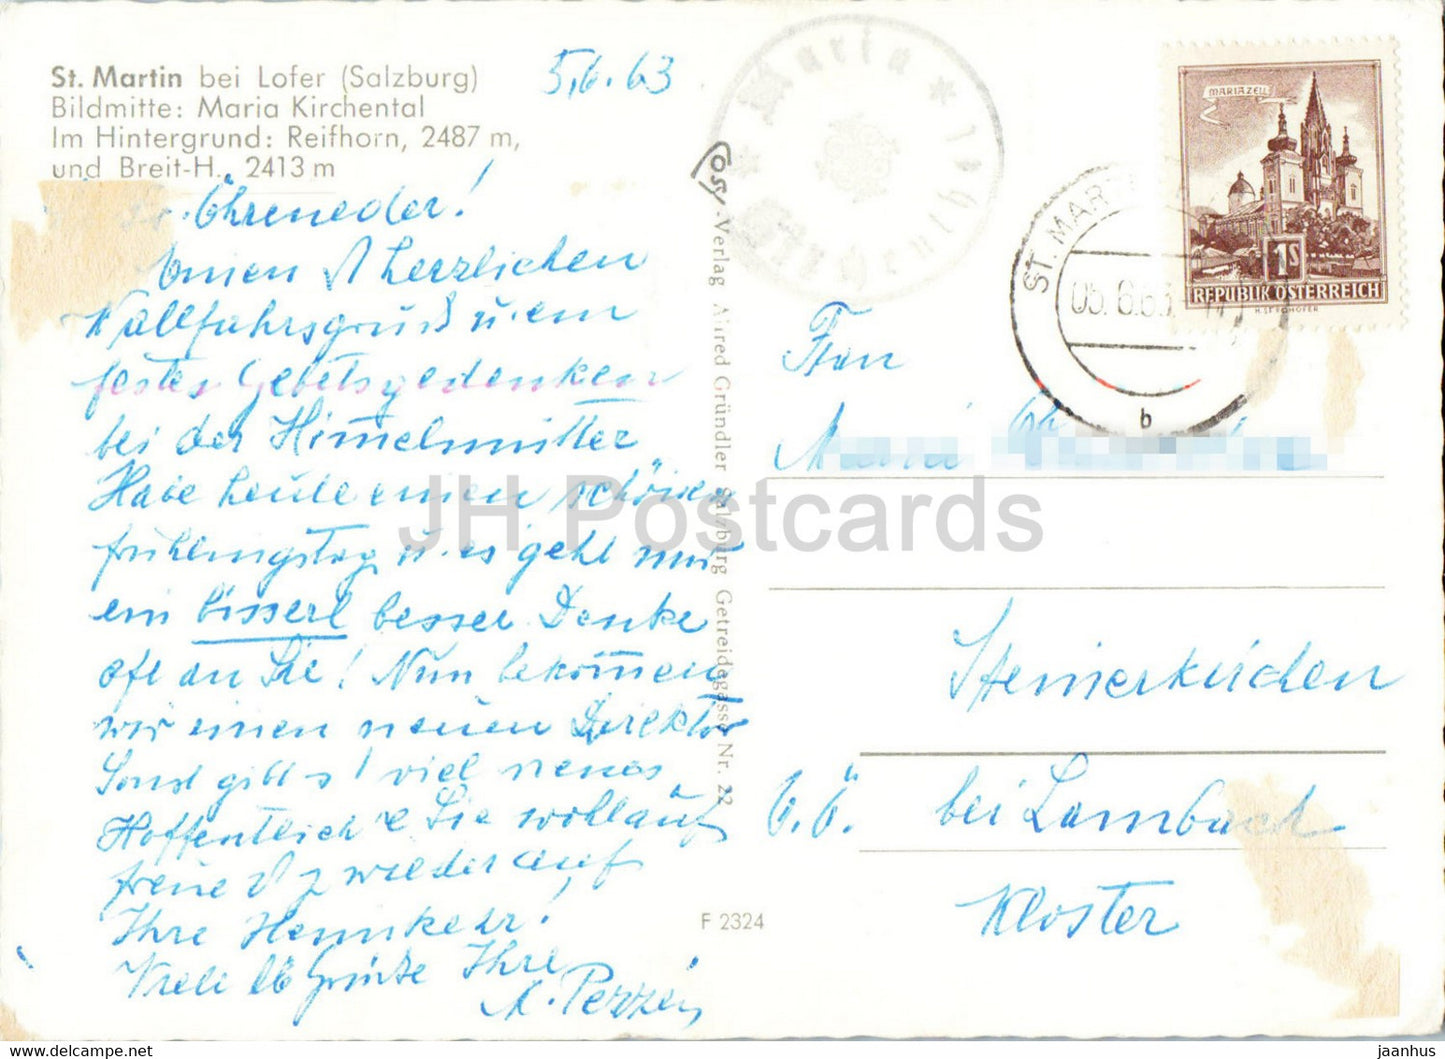 St. Martin bei Lofer (Salzburg)
Bildmitte: Maria Kirchental
Im Hintergrund: Reifhorn, 2487 m,
und Breit-H. 2413 m
5.6.63
Öhreneder!
Einen herzlichen
Wallfahrsgruß u. ein
festes Gebetsgedenken
bei der Himelmutter
Habe heute einen schönen
frühlingstag u. es geht mir
ein bisserl besser Denke
oft an Sie! Nun bekomen
wir einen neuen Direktor
Sonst gibt s! viel neues
Hoffentlich Sie wohlauf
freue wieder auf
Ihre Heimkehr!
Viele lb Grüße Ihre
Cosy-Verlag Alfred Gründler Salzburg Getreidegasse Nr. 22
F 2324
Maria
MARIAZELL
1S
REPUBLIK ÖSTERREICH
ST. MAR
05.6.63
b
Frau
Steinerkirchen
bei Lambach
O.Ö.
Kloster
JH Postcards
jaanhus | eBay